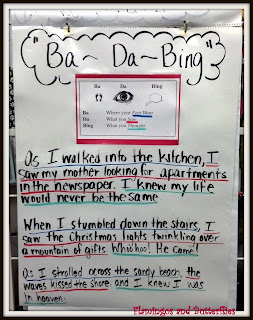 "Ba-Da-Bing"
Ba Da Bing
Ba Where your Feet Went
Da What you Saw
Bing What you Thought
As I walked into the kitchen, I
saw my mother looking for apartments
in the newspaper. I knew my life
would never be the same
When I stumbled down the stairs, I
saw the Christmas lights twinkling over
a mountain of gifts. Whoohoo! He came!
As I strolled across the sandy beach, the
waves kissed the shore and I knew I was
in heaven.
Flamingos and Butterflies